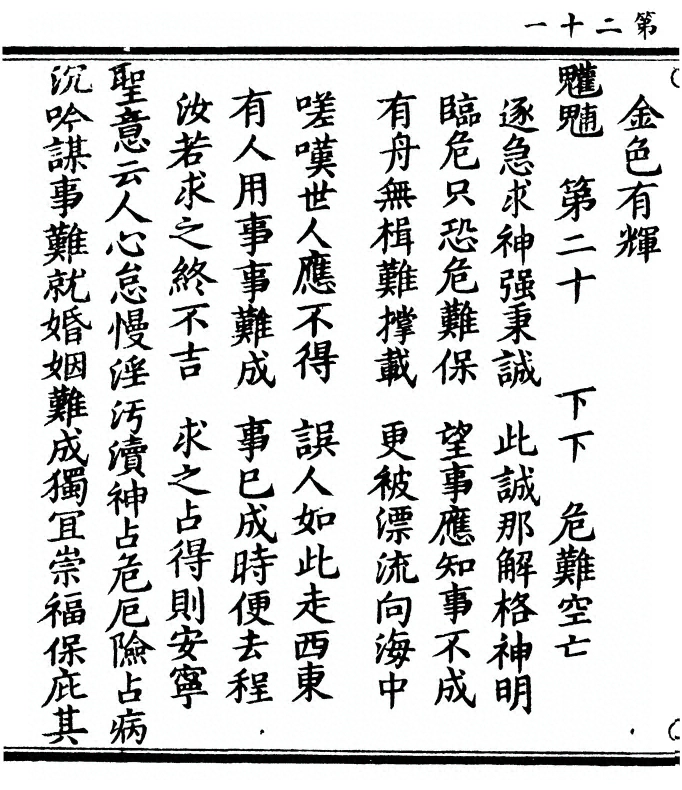 第二十一
金色有輝
魒魓 第二十 下下 危難空亡
逐急求神强秉誠 此誠那解格神明
臨危只恐危難保 望事應知事不成
有舟無楫難撐載 更被漂流向海中
嗟嘆世人應不得 誤人如此走西東
有人用事事難成 事已成時便去程
汝若求之終不吉 求之占得則安寧
聖意云人心怠慢淫汚瀆神占危厄險占病
沉吟謀事難就婚姻難成獨冝崇福保庇其